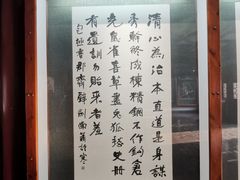 清心為治本直道是身謀
秀幹終成棟精鋼不作鉤倉
充鼠雀喜草盡兔狐愁史冊
有遺訓勿貽來者羞
包拯書郡齋壁